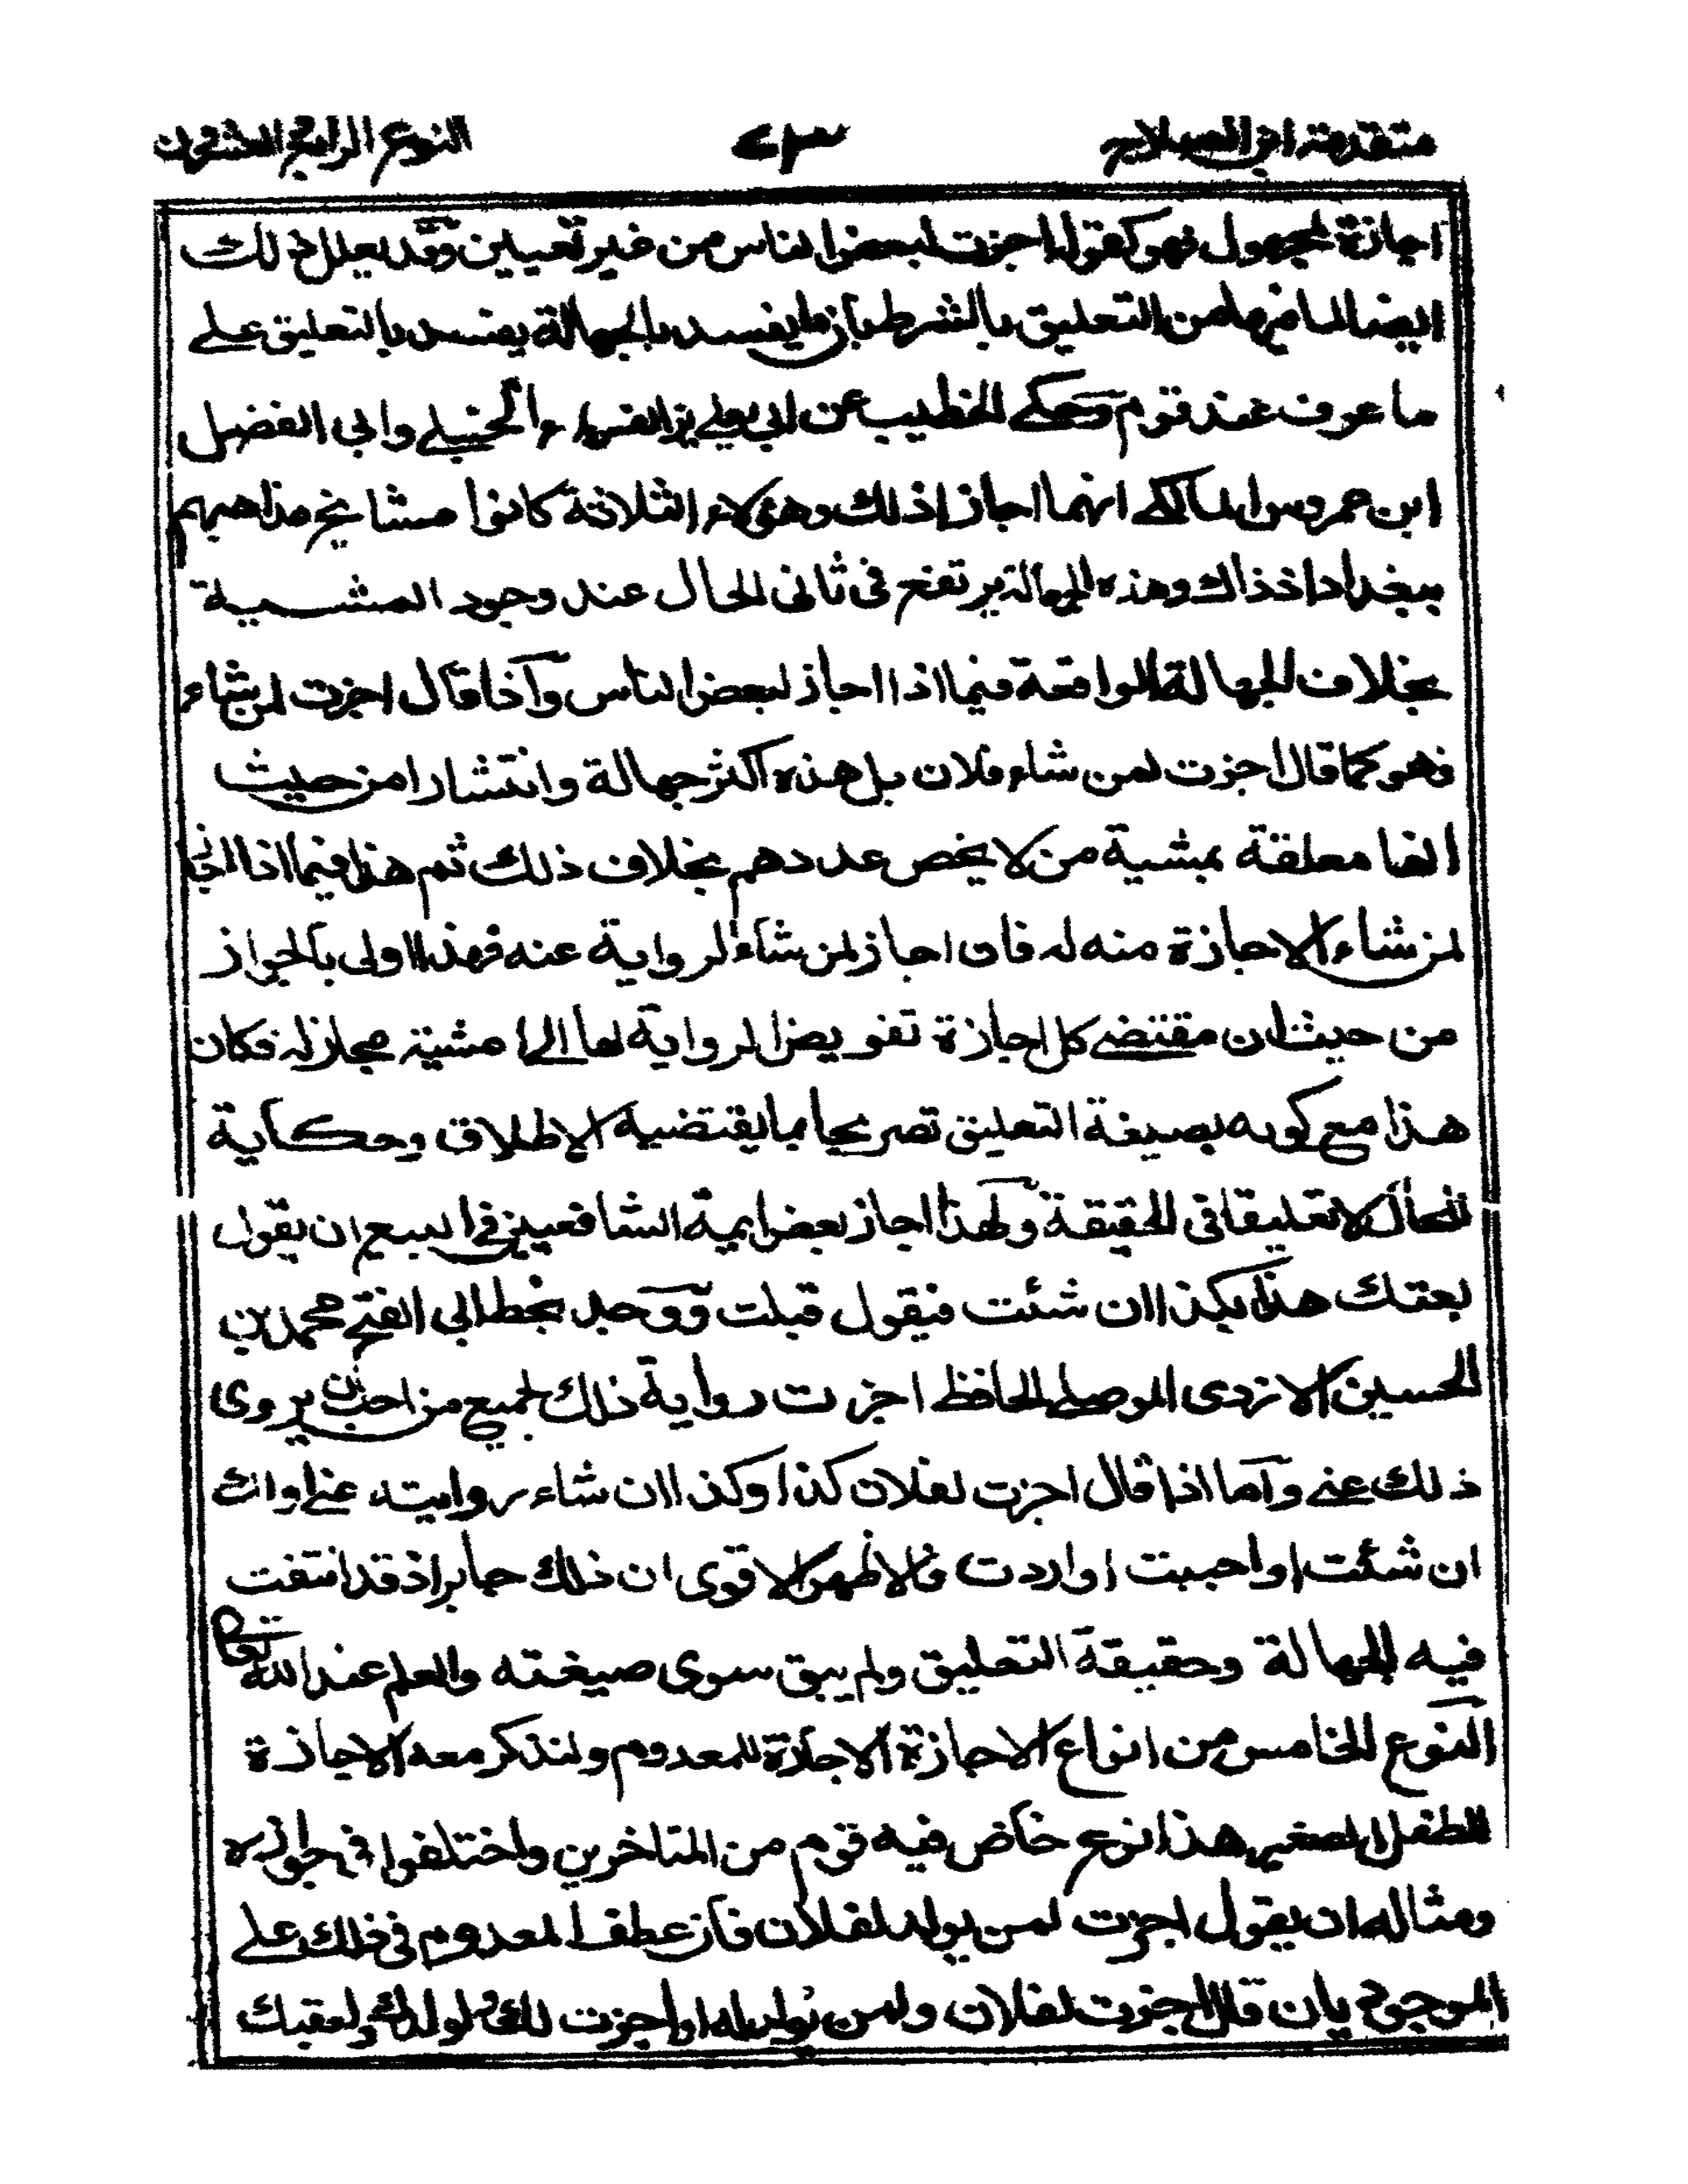 مقدمة ابن الصلاح ٧٣ النوع الرابع العشرون
اجازة لمجهول فهو كقوله اجزت لبعض الناس من غير تعيين وقد يعلل ذلك
ايضا لما فيها من التعليق بالشرط فان ما يفسد بالجهالة يفسد بالتعليق على
ما عرف عند قوم وحكى الخطيب عن ابي يعلى بن الفراء الحنبلي وابي الفضل
ابن عمروس المالكي انهما اجازا ذلك وهؤلاء الثلاثة كانوا مشائخ مذاهبهم
ببغداد اذ ذاك وهذه الجهالة يرتفع في ثاني الحال عند وجود المشية
بخلاف الجهالة الواقعة فيما اذا اجاز لبعض الناس وآذا قال اجزت لمن يشاء
فهو كما قال اجزت لمن شاء فلان بل هذه اكثر جهالة وانتشارا من حيث
انها معلقة بمشية من لا يخص عددهم بخلاف ذلك ثم هذا فيما اذا اجاز
لمن شاء الاجازة منه له فان اجاز لمن شاء الرواية عنه فهذا اولى بالجواز
من حيث ان مقتضى كل اجازة تفويض الرواية لها الى مشية مجاز له فكان
هذا مع كونه بصيغة التعليق تصريحا بما يقتضيه الاطلاق وحكاية
للحال لا تعليقا في الحقيقة ولهذا اجاز بعض ايمة الشافعيين في البيع ان يقول
بعتك هذا بكذا ان شئت فيقول قبلت ووجد بخط ابي الفتح محمد بن
الحسين الازدي الموصلي الحافظ اجزت رواية ذلك لجميع من احب ان يروى
ذلك عني وآما اذا قال اجزت لفلان كذا وكذا ان شاء روايته عني او لك
ان شئت او احببت او اردت فالاظهر الاقوى ان ذلك جايز اذ قد انتفت
فيه الجهالة وحقيقة التعليق ولم يبق سوى صيغته والعلم عند الله تعالى
النوع الخامس من انواع الاجازة الاجازة للمعدوم ولنذكر معه الاجازة
للطفل الصغير هذا نوع خاض فيه قوم من المتاخرين واختلفوا في جوازه
ومثاله ان يقول اجزت لمن يولد لفلان فان عطف المعدوم في ذلك على
الموجود بان قال اجزت لفلان ولمن يولد له او اجزت لك ولولدك ولعقبك